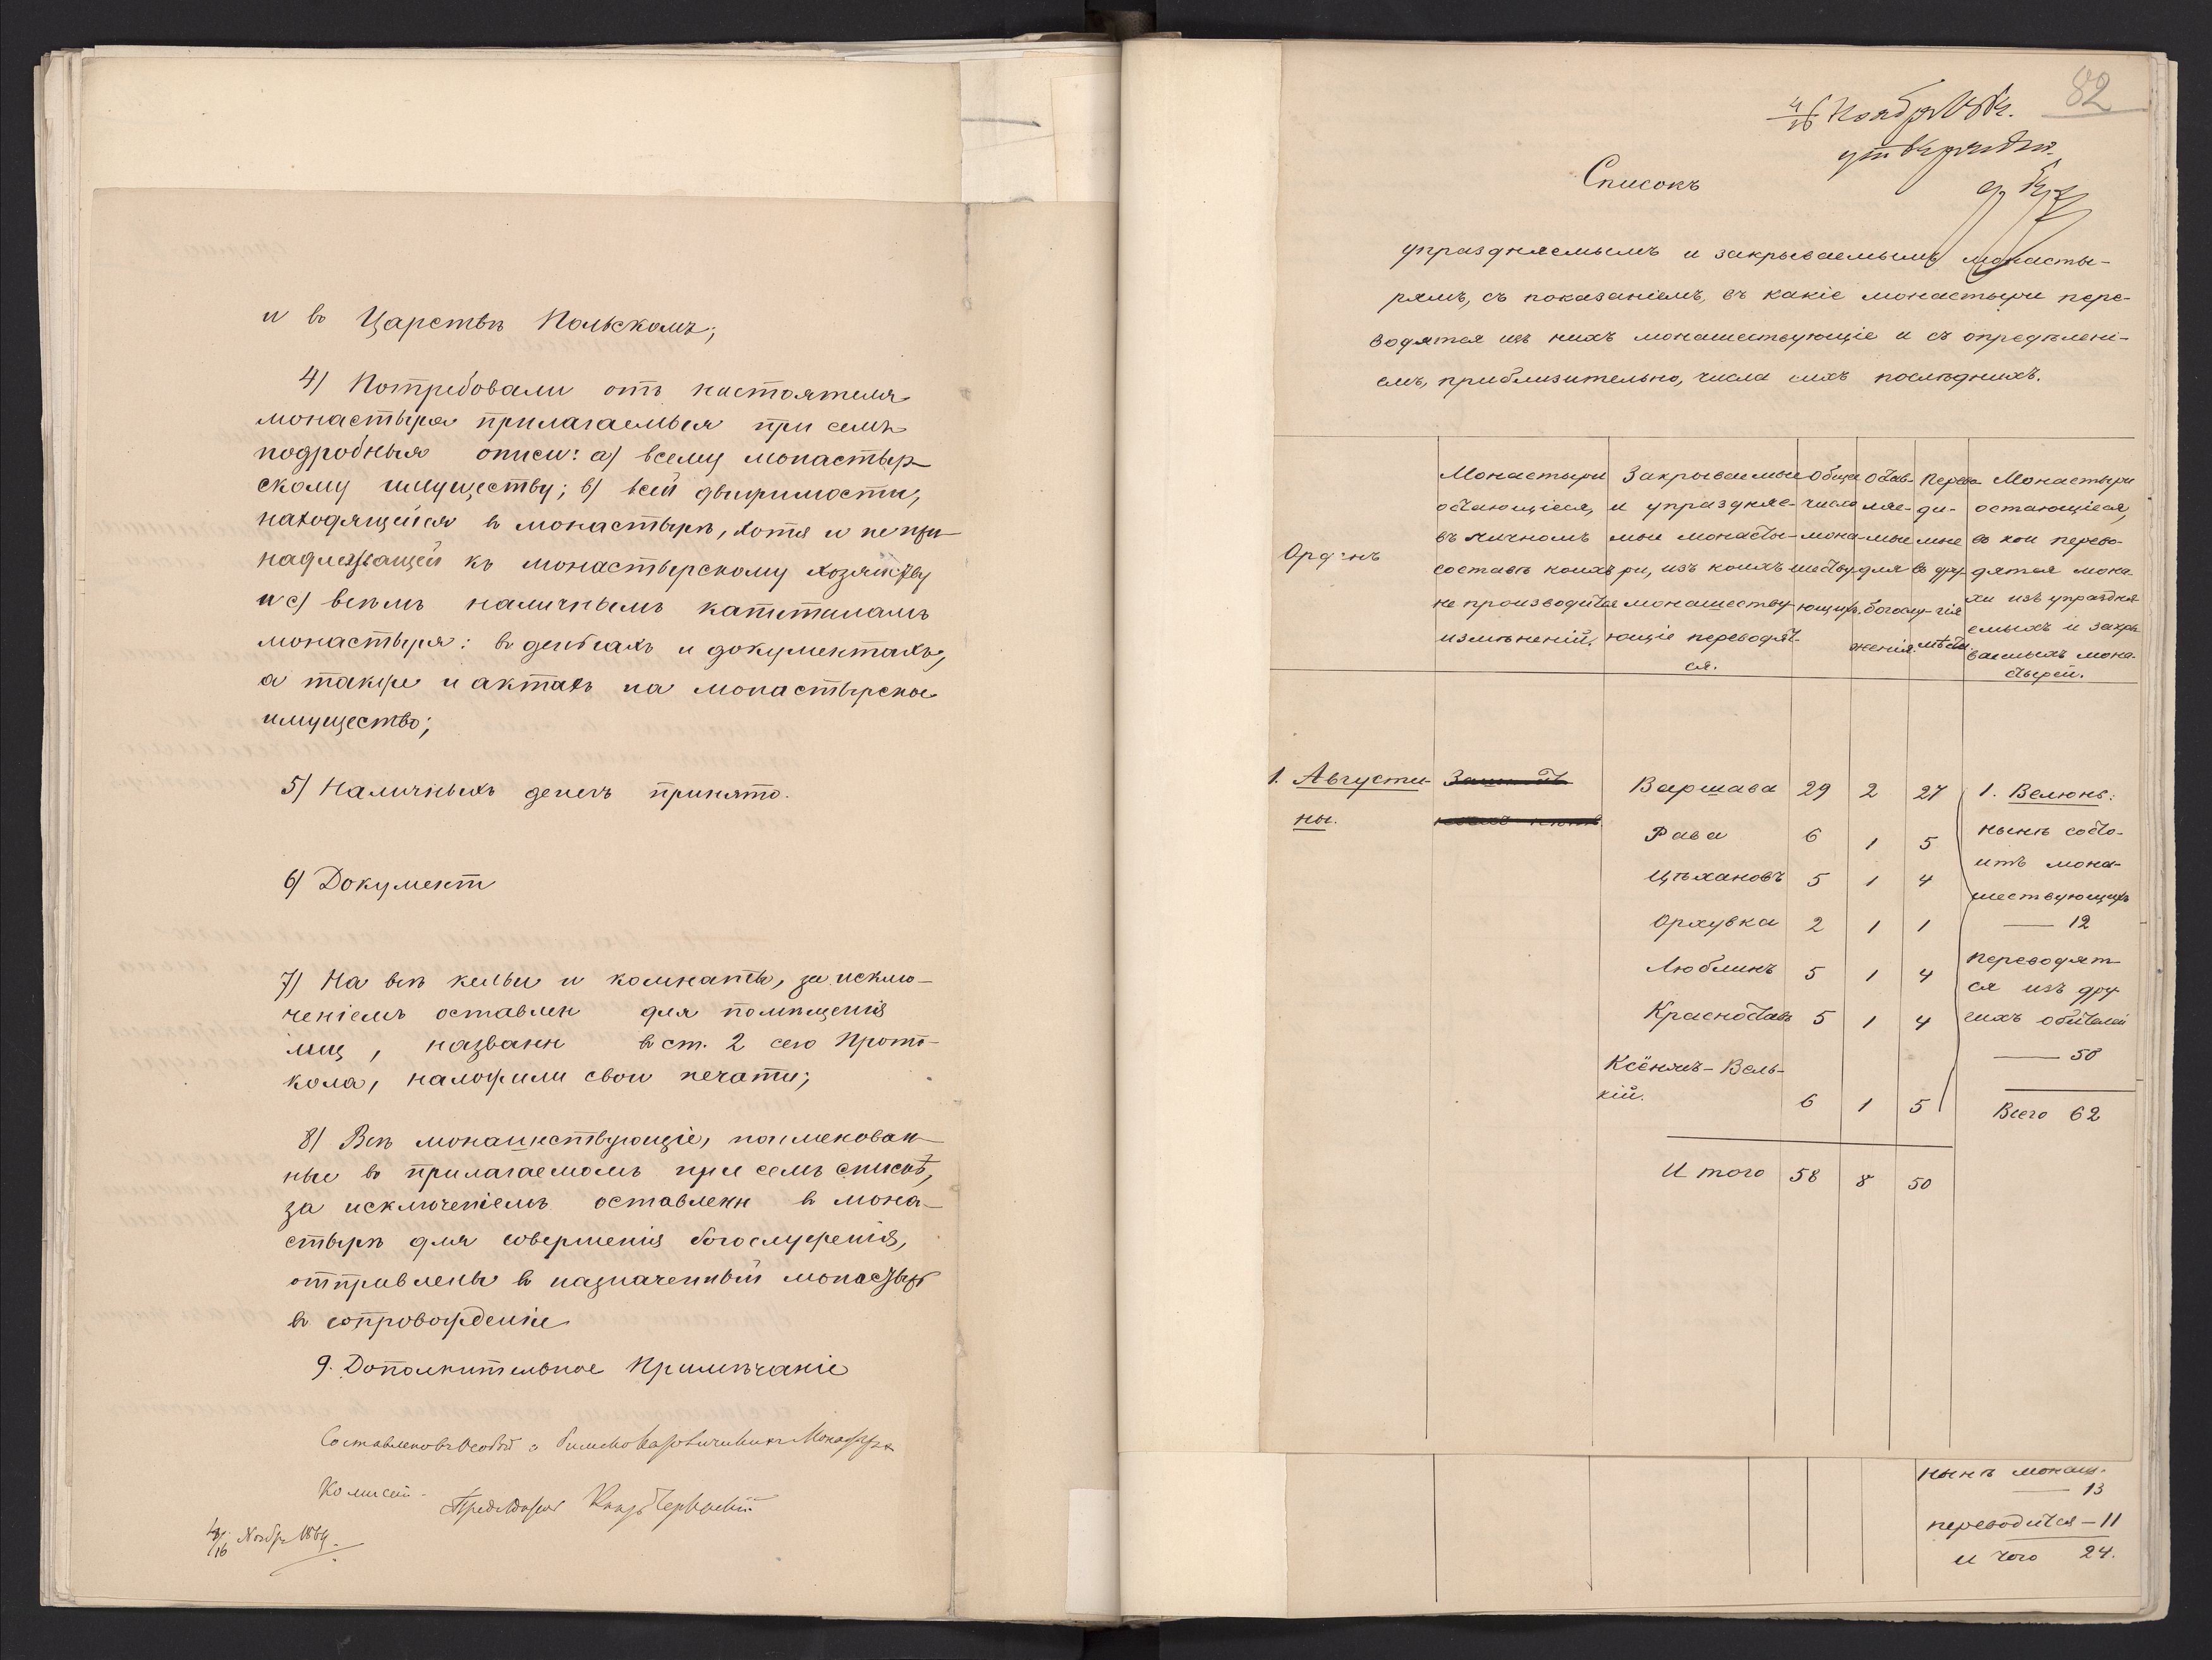 и въ Царствѣ Польскомъ;
4) Потребовали отъ настоятеля
монастыря прилагаемыя при семъ
подробныя описи: а) всему монастыр-
скому имуществу; b) всей движимости,
находящейся въ монастырѣ, хотя и не при-
надлежащей къ монастырскому хозяйству
и с) всѣмъ наличнымъ капиталамъ
монастыря: въ деньгахъ и документахъ,
а также и актахъ на монастырское
имущество;
5) Наличныхъ денегъ принято.
6) Документ
7) На всѣ кельи и комнаты, за исклю-
ченіемъ оставлен для помѣщенія
лиц , названн въ ст. 2 сего Прото-
кола, наложили свои печати;
8) Всѣ монашествующіе, поименован-
ные въ прилагаемомъ при семъ спискѣ,
за исключеніемъ оставленн въ мона-
стырѣ для совершенія богослуженія,
отправлены въ назначенный монастырь
въ сопровожденіе
9. Дополнительное Примѣчаніе
Составлено въ Особой о Римско
Комисіи.
Предсѣдатель Князь Черкаскій
4/16 Ноября 1864.
82
4/16 Ноября 1864.
утверждено.
Списокъ
упраздняемымъ и закрываемымъ монасты-
рямъ, съ показаніемъ, въ какіе монастыри пере-
водятся изъ нихъ монашествующіе и съ опредѣлені-
емъ, приблизительно, числа сихъ послѣднихъ.
Орденъ
Монастыри
остающіеся,
въ личномъ
составѣ коихъ
не производится
измѣненій.
Закрываемые
и упраздняе-
мые монасты-
ри, изъ коихъ
монашеству-
ющіе переводят-
ся.
Общее
число
мона-
шеству-
ющихъ.
Остав-
ляе-
мые
для
богослу-
женія.
Перево-
ди-
мые
въ дру-
гія
мѣста.
Монастыри
остающіеся,
въ кои перево-
дятся мона-
хи изъ упраздня-
емыхъ и закры-
ваемыхъ мона-
стырей.
1. Августи-
ны.
Варшава 29 2 27
Рава 6 1 5
Цѣхановъ 5 1 4
Орхувка 2 1 1
Люблинъ 5 1 4
Красноставъ 5 1 4
Ксёнжъ-Вель-
кій. 6 1 5
Итого 58 8 50
1. Велюнь:
нынѣ состо-
итъ мона-
шествующихъ
— 12
переводят-
ся изъ дру-
гихъ обителей
— 50
Всего 62
нынѣ монаш.
— 13
переводится — 11
итого 24.